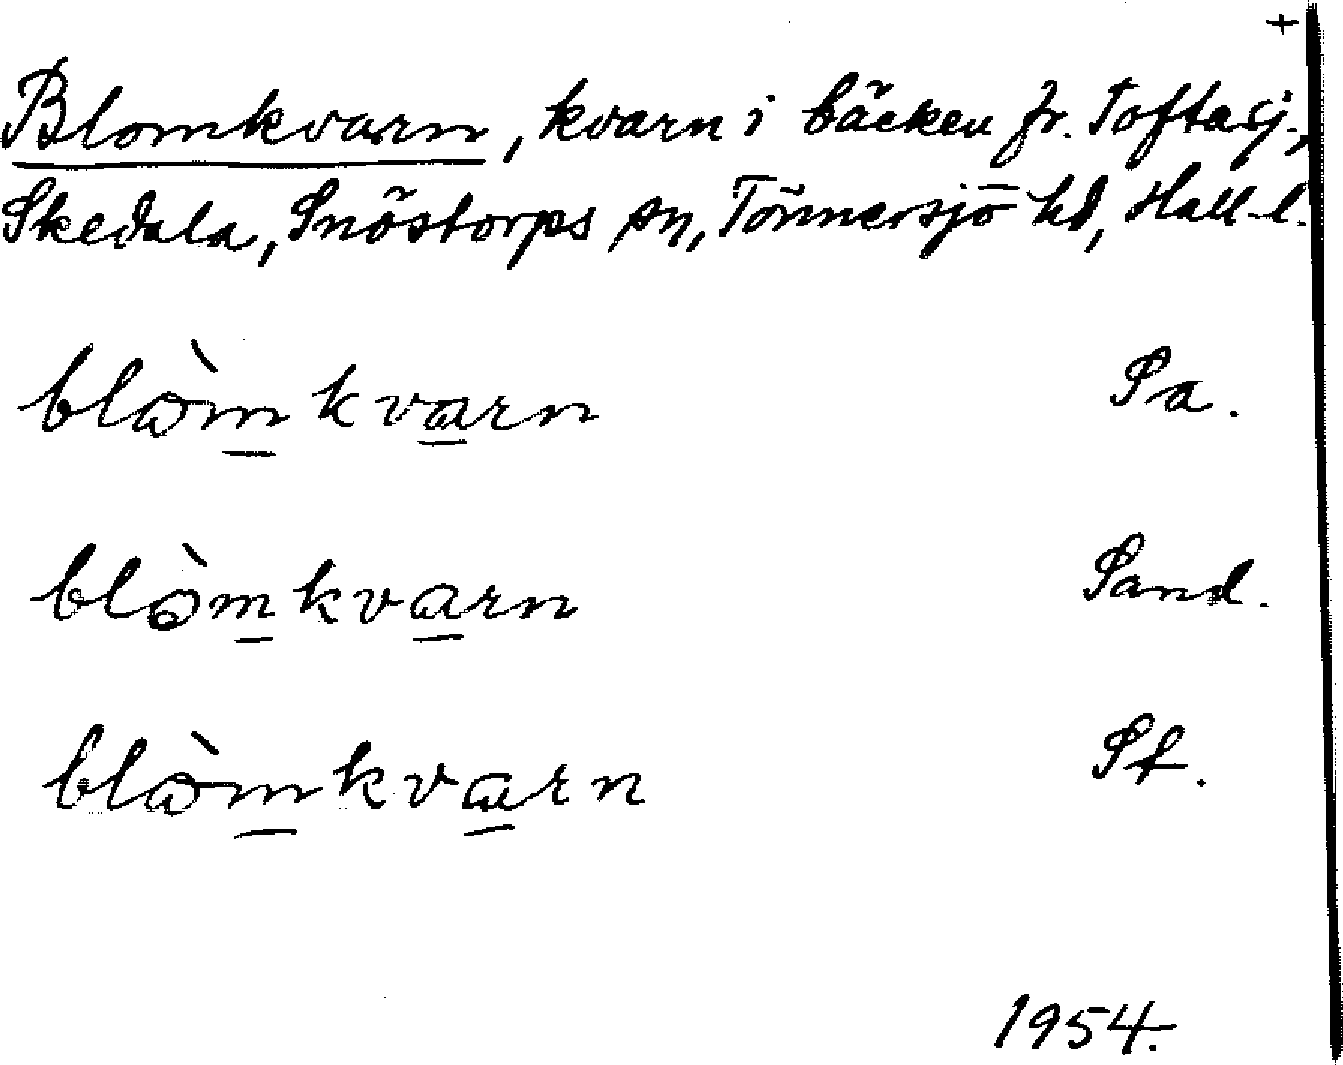 +
Blomkvarn, kvarn i bäcken fr. Toftasj.,
Skedala, Snöstorps sn, Tönnersjö hd, Hall. l.
blòmkvarn Sa.
blòmkvarn Sand.
blòmkvarn St.
1954.